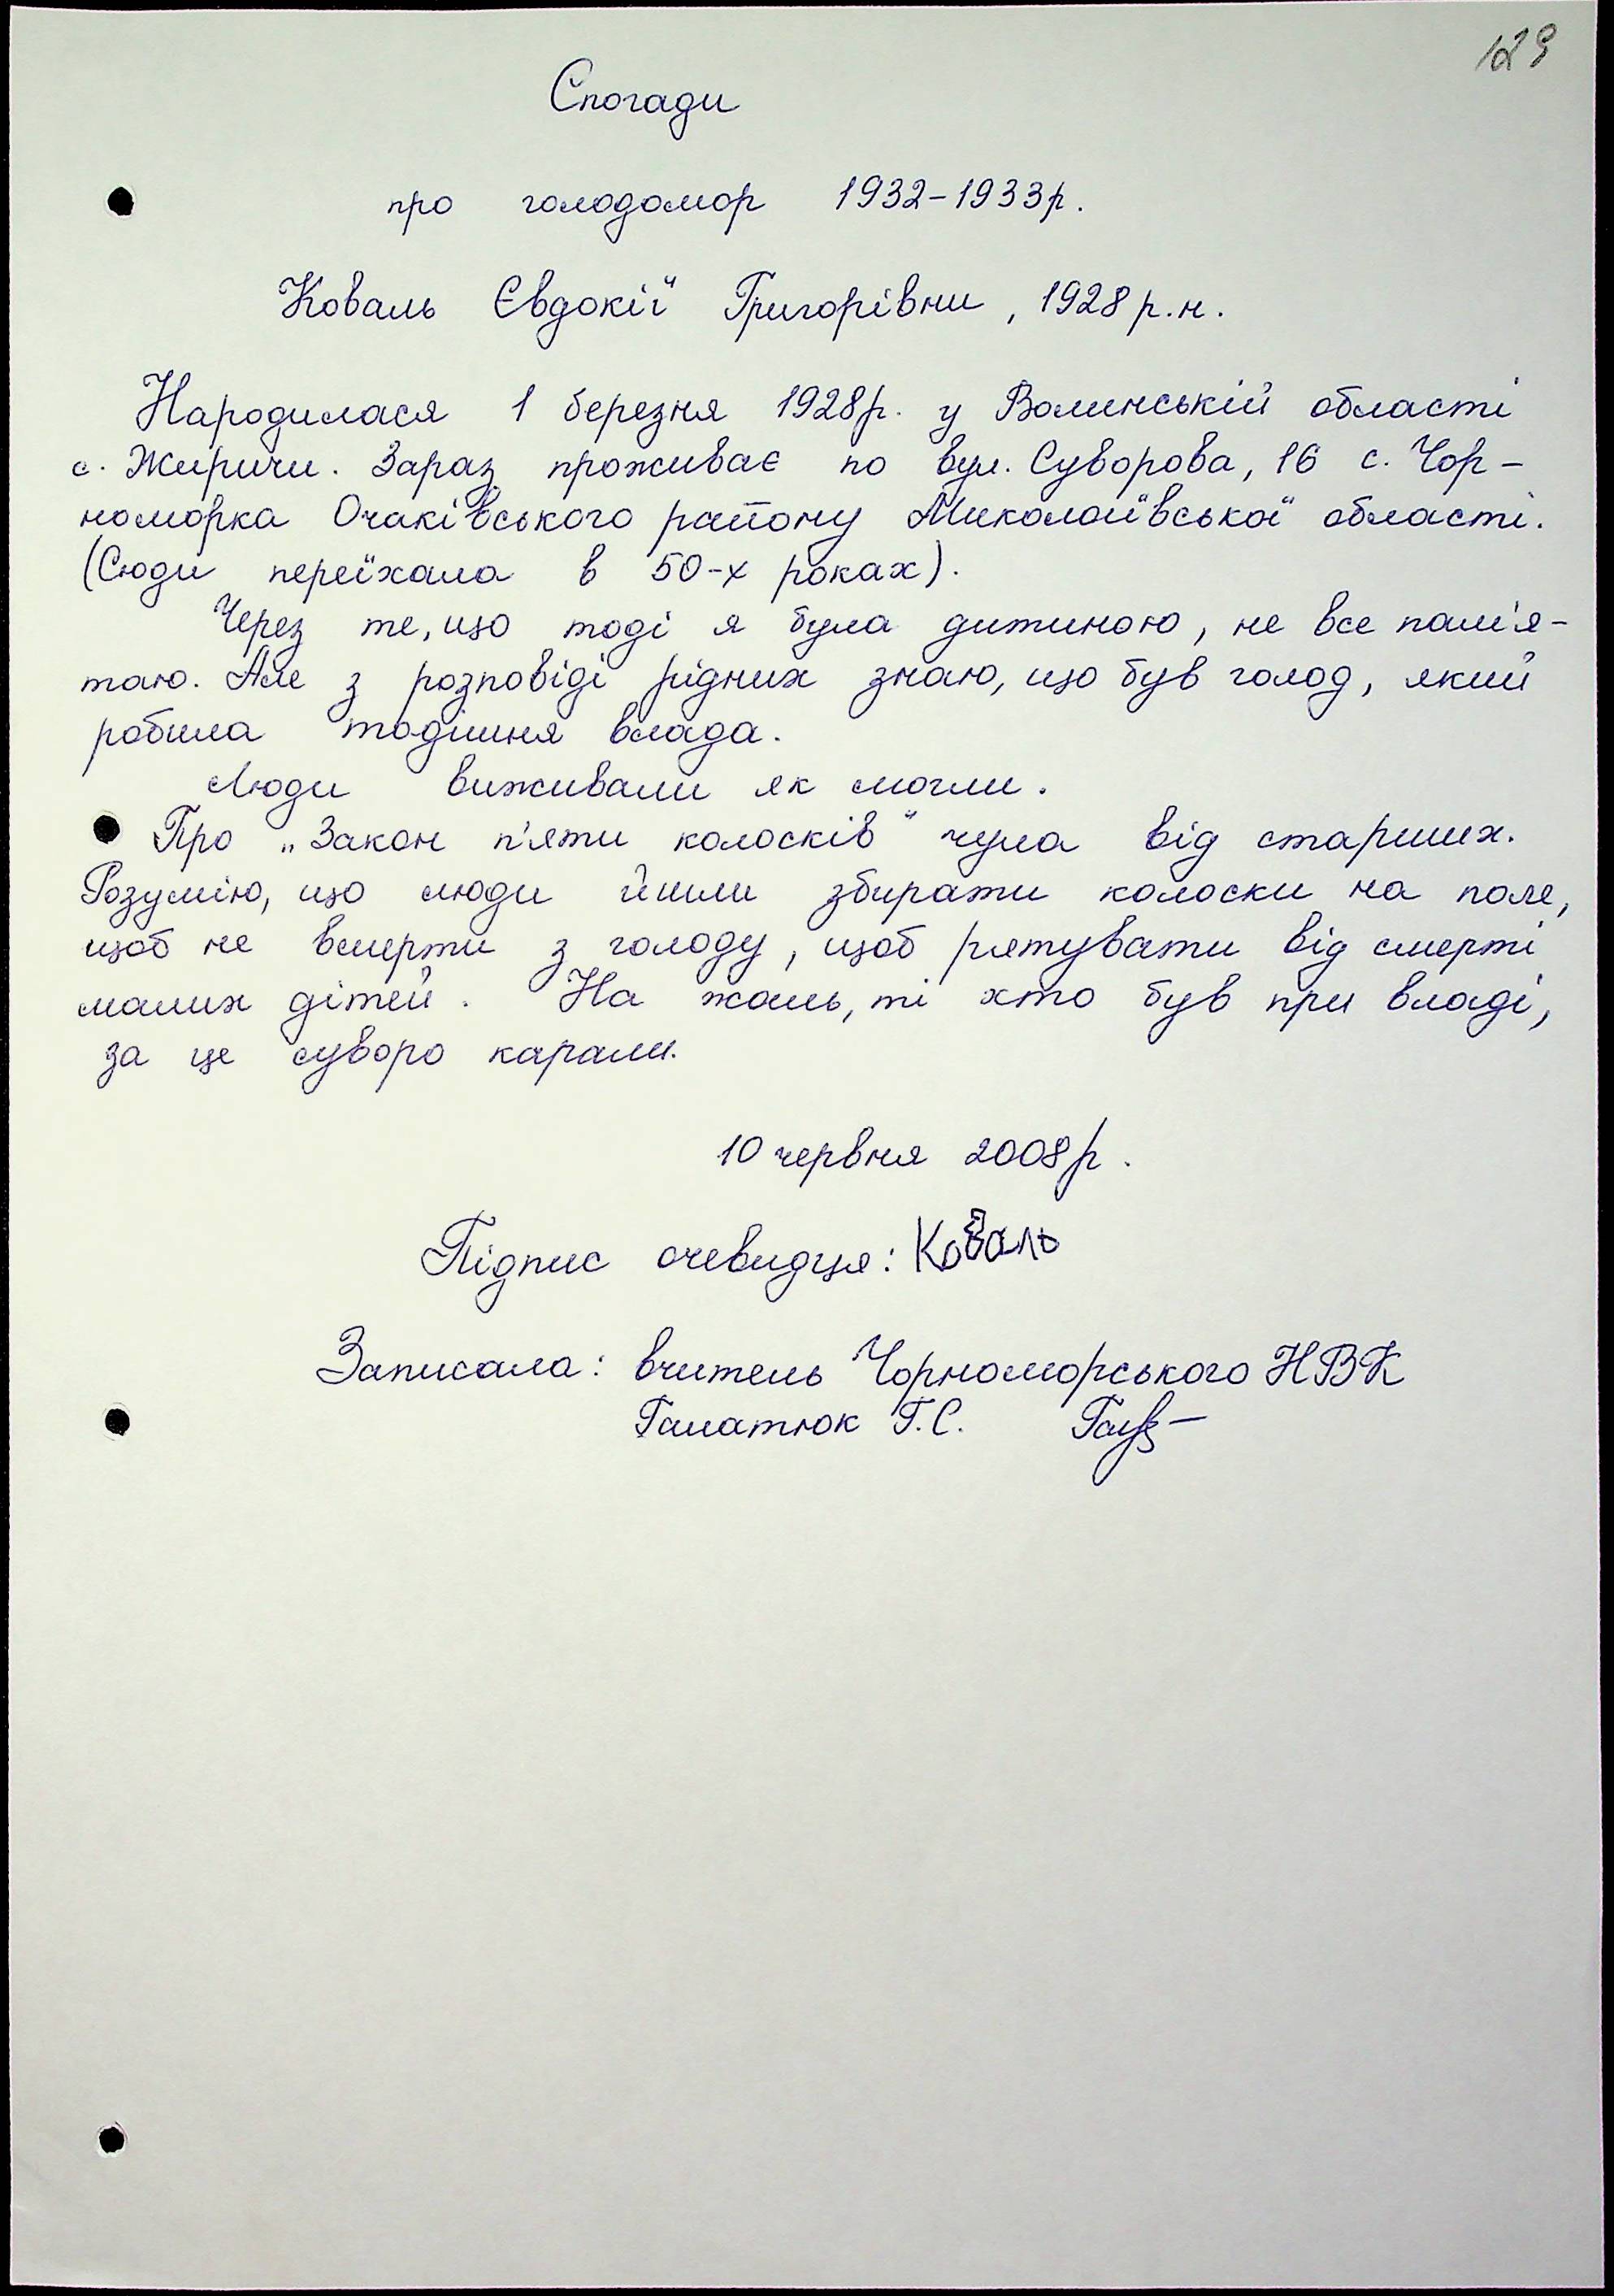 129
Спогади
про голодомор 1932-1933р.
Коваль Євдокії Григорівни, 1928 р.н.
Народилася 1 березня 1928р. у Волинській області
с. Жиричи. Зараз проживає по вул. Суворова, 16 с. Чор-
номорка Очаківського району Миколаївської області.
(Сюди переїхала в 50-х роках).
Через те, що тоді я була дитиною, не все пам'я-
таю. Але з розповіді рідних знаю, що був голод, який
робила тодішня влада.
Люди виживали як могли.
Про „Закон п'яти колосків" чула від старших.
Розумію, що люди йшли збирати колоски на поле,
щоб не вмерти з голоду, щоб рятувати від смерті
малих дітей. На жаль, ті хто був при владі,
за це суворо карали.
10 червня 2008р.
Підпис очевидця: Коваль
Записала: вчитель Чорноморського НВК
Г.С.